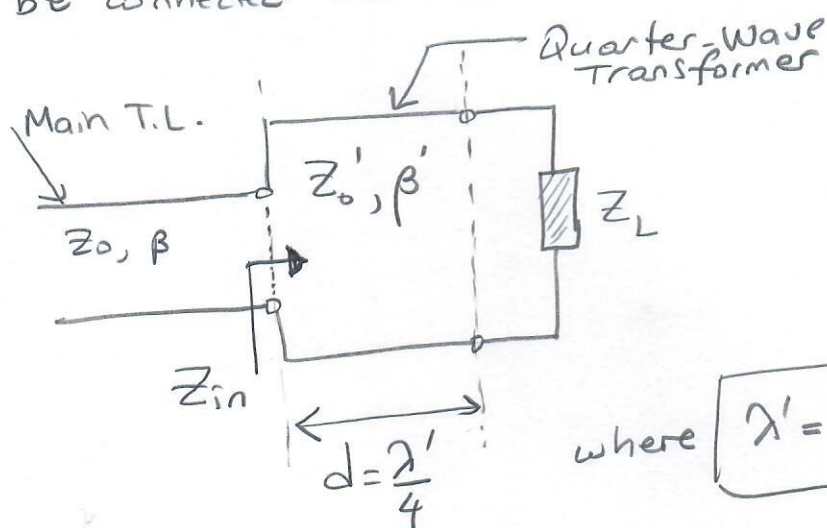 be connected
Quarter-Wave
Transformer
Main T.L.
Z₀', β'
Z_L
Z₀, β
Z_in
d = λ'/4
where λ' =